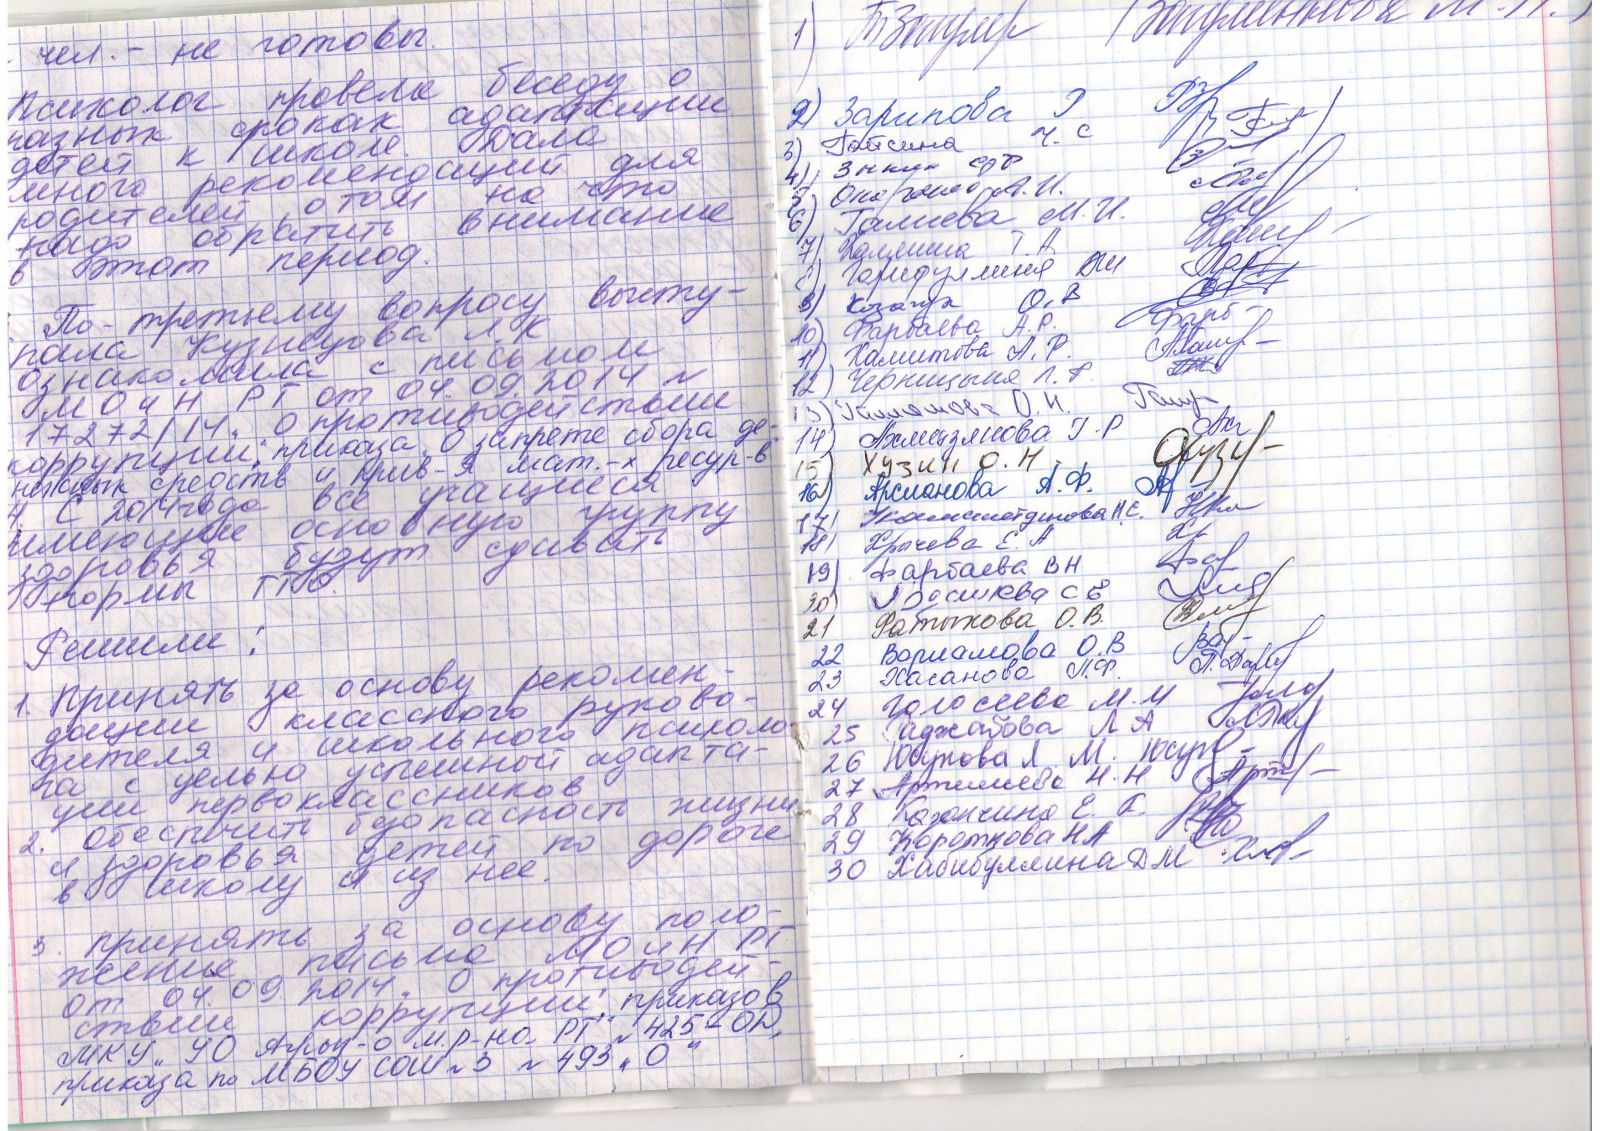 чел. - не готовы.
Психолог провела беседу о
разных сроках адаптации
детей к школе. Дала
много рекомендаций для
родителей о том на что
надо обратить внимание
в этот период.
По-третьему вопросу высту-
пала Кузнецова Л.К
Ознакомила с письмом
МОиН РТ от 04.09.2014 №
17272/14. О противодействии
коррупции; приказа „О запрете сбора де-
нежных средств и прив-я мат.-х ресур-в
4. С 2014 года все учащиеся
имеющие основную группу
здоровья будут сдавать
нормы ГТО.
Решили:
1. Принять за основу рекомен-
дации классного руково-
дителя и школьного психоло-
га с целью успешной адапта-
ции первоклассников
2. Обеспечить безопасность жизни
и здоровья детей по дороге
в школу и из нее.
3. принять за основу поло-
жение письма МОиН РТ
от 04.09.2014. О противодей-
ствии коррупции; приказов
МКУ „УО м.р-на РТ" № 425-ОД,
приказа по МБОУ СОШ №3 № 493 „О"
1)
2) Зарипова Г
3) Ч. С
4)
5 Л.И.
6) Галиева М.И.
7) Т. А
8) Гарифуллина
9) О. В
10) Фарбаева А.Р.
11) Хамитова А.Р.
12) Черницына
13) О. Н.
14) Ахмезянова Г.Р
15) Хузин О. Н.
16) Арсланова А.Ф.
17)
18) Хрычева Е. А
19) Фарбаева В Н
20)
21 О.В.
22 Варламова О.В
23 Хасанова Л.Ф.
24 Голосеева М.М
25 Гаджабова Л А
26 Юсупова Л. М. Юсуп
27 Артемьева Н. Н
28 Казанчина Е. Г.
29 Короткова Н А
30 Хабибуллина Д М